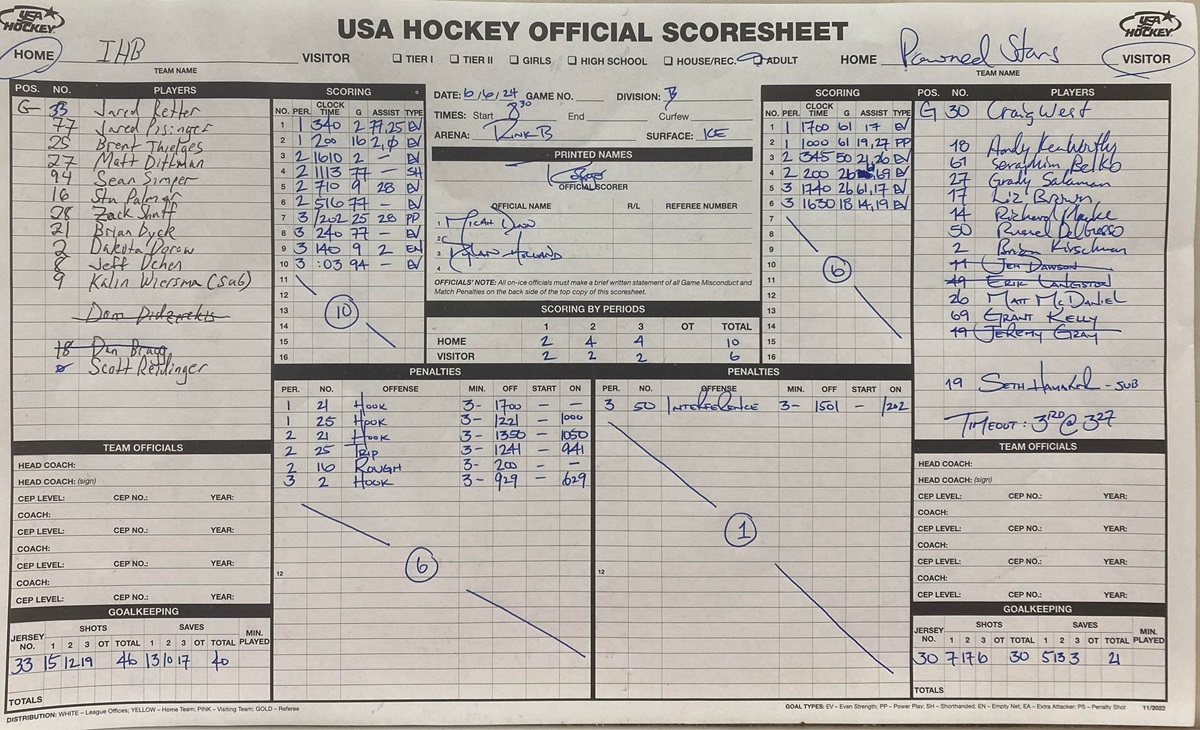 USA HOCKEY
USA HOCKEY OFFICIAL SCORESHEET
USA HOCKEY
HOME IHB VISITOR TIER I TIER II GIRLS HIGH SCHOOL HOUSE/REC. ADULT HOME Pawned Stars VISITOR
TEAM NAME TEAM NAME
POS. NO. PLAYERS
G- 33 Jared Retter
77 Jared Pisinger
25 Brent Thietges
27 Matt Dittman
94 Sean Simper
16 Stu Palmer
28 Zack Shatt
21 Brian Dyck
2 Dakota Dorow
8 Jeff Uchen
9 Kalin Wiersma (Sub)
18 Dan Bragg
Scott Reidinger
SCORING
NO. PER. CLOCK TIME G ASSIST TYPE
1 1 340 2 77,25 EV
2 1 200 16 2,8 EV
3 2 1610 2 - EV
4 2 1113 77 - SH
5 2 710 9 28 EV
6 2 516 77 - EV
7 3 1202 25 28 PP
8 3 240 77 - EV
9 3 140 9 2 EN
10 3 :03 94 - EV
11
12
13
14
15
16
10
DATE: 6/6/24 GAME NO. DIVISION: B
TIMES: Start 8:30 End Curfew
ARENA: RINK B SURFACE: ICE
PRINTED NAMES
OFFICIAL SCORER
OFFICIAL NAME R/L REFEREE NUMBER
1
2
3 DYLAN HOLLAND
4
OFFICIALS' NOTE: All on-ice officials must make a brief written statement of all Game Misconduct and
Match Penalties on the back side of the top copy of this scoresheet.
SCORING BY PERIODS
1 2 3 OT TOTAL
HOME 2 4 4 10
VISITOR 2 2 2 6
SCORING
NO. PER. CLOCK TIME G ASSIST TYPE
1 1 1700 61 17 EV
2 1 1000 61 19,27 PP
3 2 345 50 21,26 EV
4 2 200 26 69 EV
5 3 1740 26 61,17 EV
6 3 1630 18 14,19 EV
7
8
9
10
11
12
13
14
15
16
6
POS. NO. PLAYERS
G 30 Craig West
18 Andy Kenworthy
61 Seraphim Belko
27 Grady Salaman
17 Liz Brown
14 Richard
50 Russel DelGrosso
2 Brian Kirschman
11 Jen Dawson
49 Erik Langston
26 Matt McDaniel
69 Grant Kelly
49 Jeremy Gray
19 Seth - SUB
TIMEOUT: 3RD @ 327
PENALTIES
PER. NO. OFFENSE MIN. OFF START ON
1 21 HOOK 3- 1700 - -
1 25 HOOK 3- 1221 - 1000
2 21 HOOK 3- 1350 - 1050
2 25 TRIP 3- 1241 - 941
2 16 ROUGH 3- 200 - -
3 2 HOOK 3- 929 - 629
6
12
PENALTIES
PER. NO. OFFENSE MIN. OFF START ON
3 50 INTERFERENCE 3- 1501 - 1202
1
12
TEAM OFFICIALS
HEAD COACH:
HEAD COACH: (sign)
CEP LEVEL: CEP NO.: YEAR:
COACH:
CEP LEVEL: CEP NO.: YEAR:
COACH:
CEP LEVEL: CEP NO.: YEAR:
COACH:
CEP LEVEL: CEP NO.: YEAR:
GOALKEEPING
JERSEY NO. SHOTS SAVES MIN. PLAYED
1 2 3 OT TOTAL 1 2 3 OT TOTAL
33 15 12 19 46 13 10 17 40
TOTALS
TEAM OFFICIALS
HEAD COACH:
HEAD COACH: (sign)
CEP LEVEL: CEP NO.: YEAR:
COACH:
CEP LEVEL: CEP NO.: YEAR:
COACH:
CEP LEVEL: CEP NO.: YEAR:
COACH:
CEP LEVEL: CEP NO.: YEAR:
GOALKEEPING
JERSEY NO. SHOTS SAVES MIN. PLAYED
1 2 3 OT TOTAL 1 2 3 OT TOTAL
30 7 17 6 30 5 13 3 21
TOTALS
DISTRIBUTION: WHITE – League Offices; YELLOW – Home Team; PINK – Visiting Team; GOLD – Referee
GOAL TYPES: EV – Even Strength; PP – Power Play; SH – Shorthanded; EN – Empty Net; EA – Extra Attacker; PS – Penalty Shot 11/2022